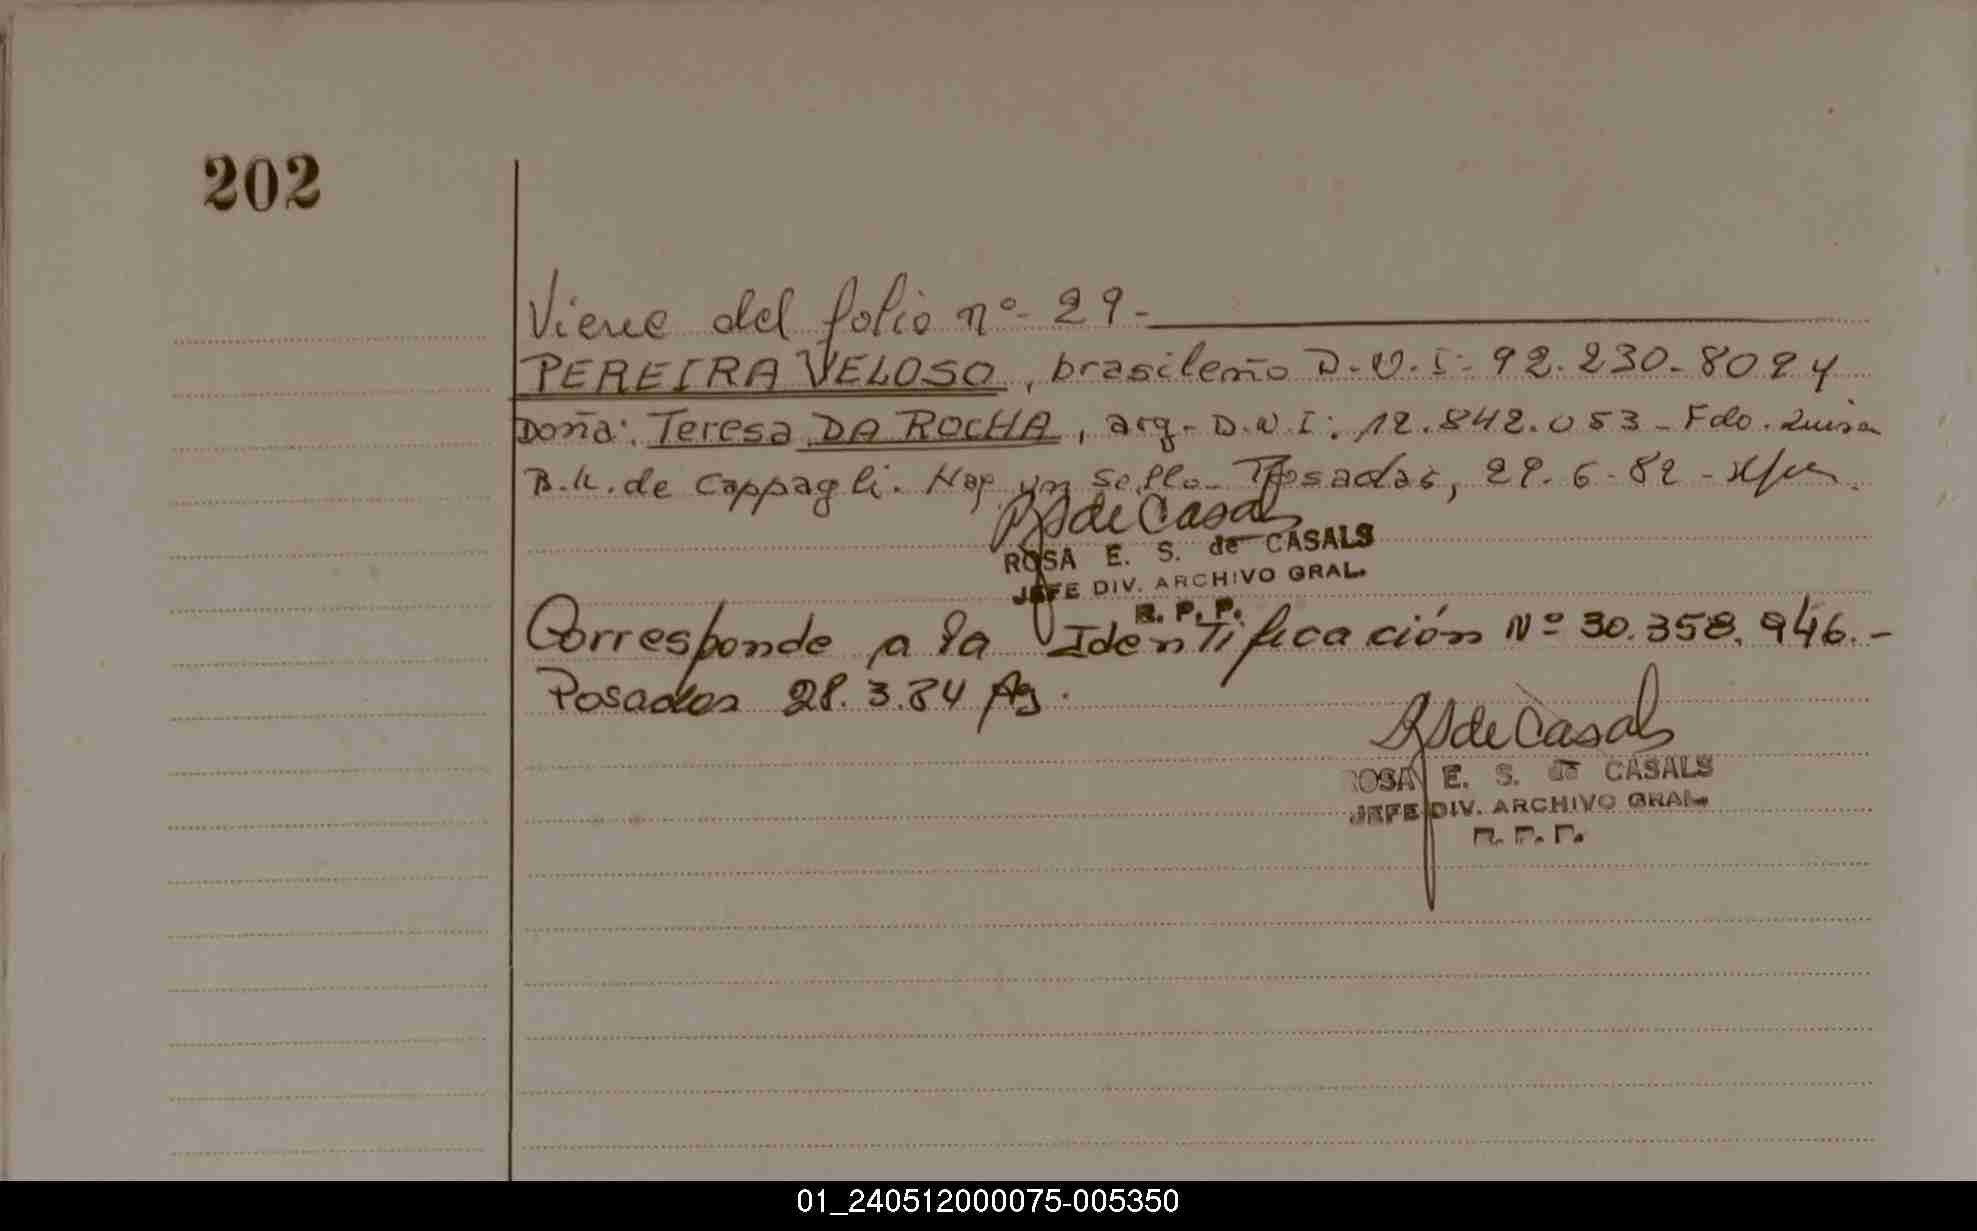 202
Viene del folio nº- 29-
PEREIRA VELOSO, brasileño D.N.I: 92.230.802 y
Doña: Teresa DA ROCHA, arg. D.N.I: 12.842.053- Fdo. Luisa
B.K. de Cappagli. Hay un sello- Posadas, 29-6-82-
RSdeCasals
ROSA E. S. de CASALS
JEFE DIV. ARCHIVO GRAL.
R. P. P.
Corresponde a la Identificación Nº 30.358.946.-
Posadas 28.3.84 Ag.
RSdeCasals
ROSA E. S. de CASALS
JEFE DIV. ARCHIVO GRAL.
R. P. P.
01_240512000075-005350